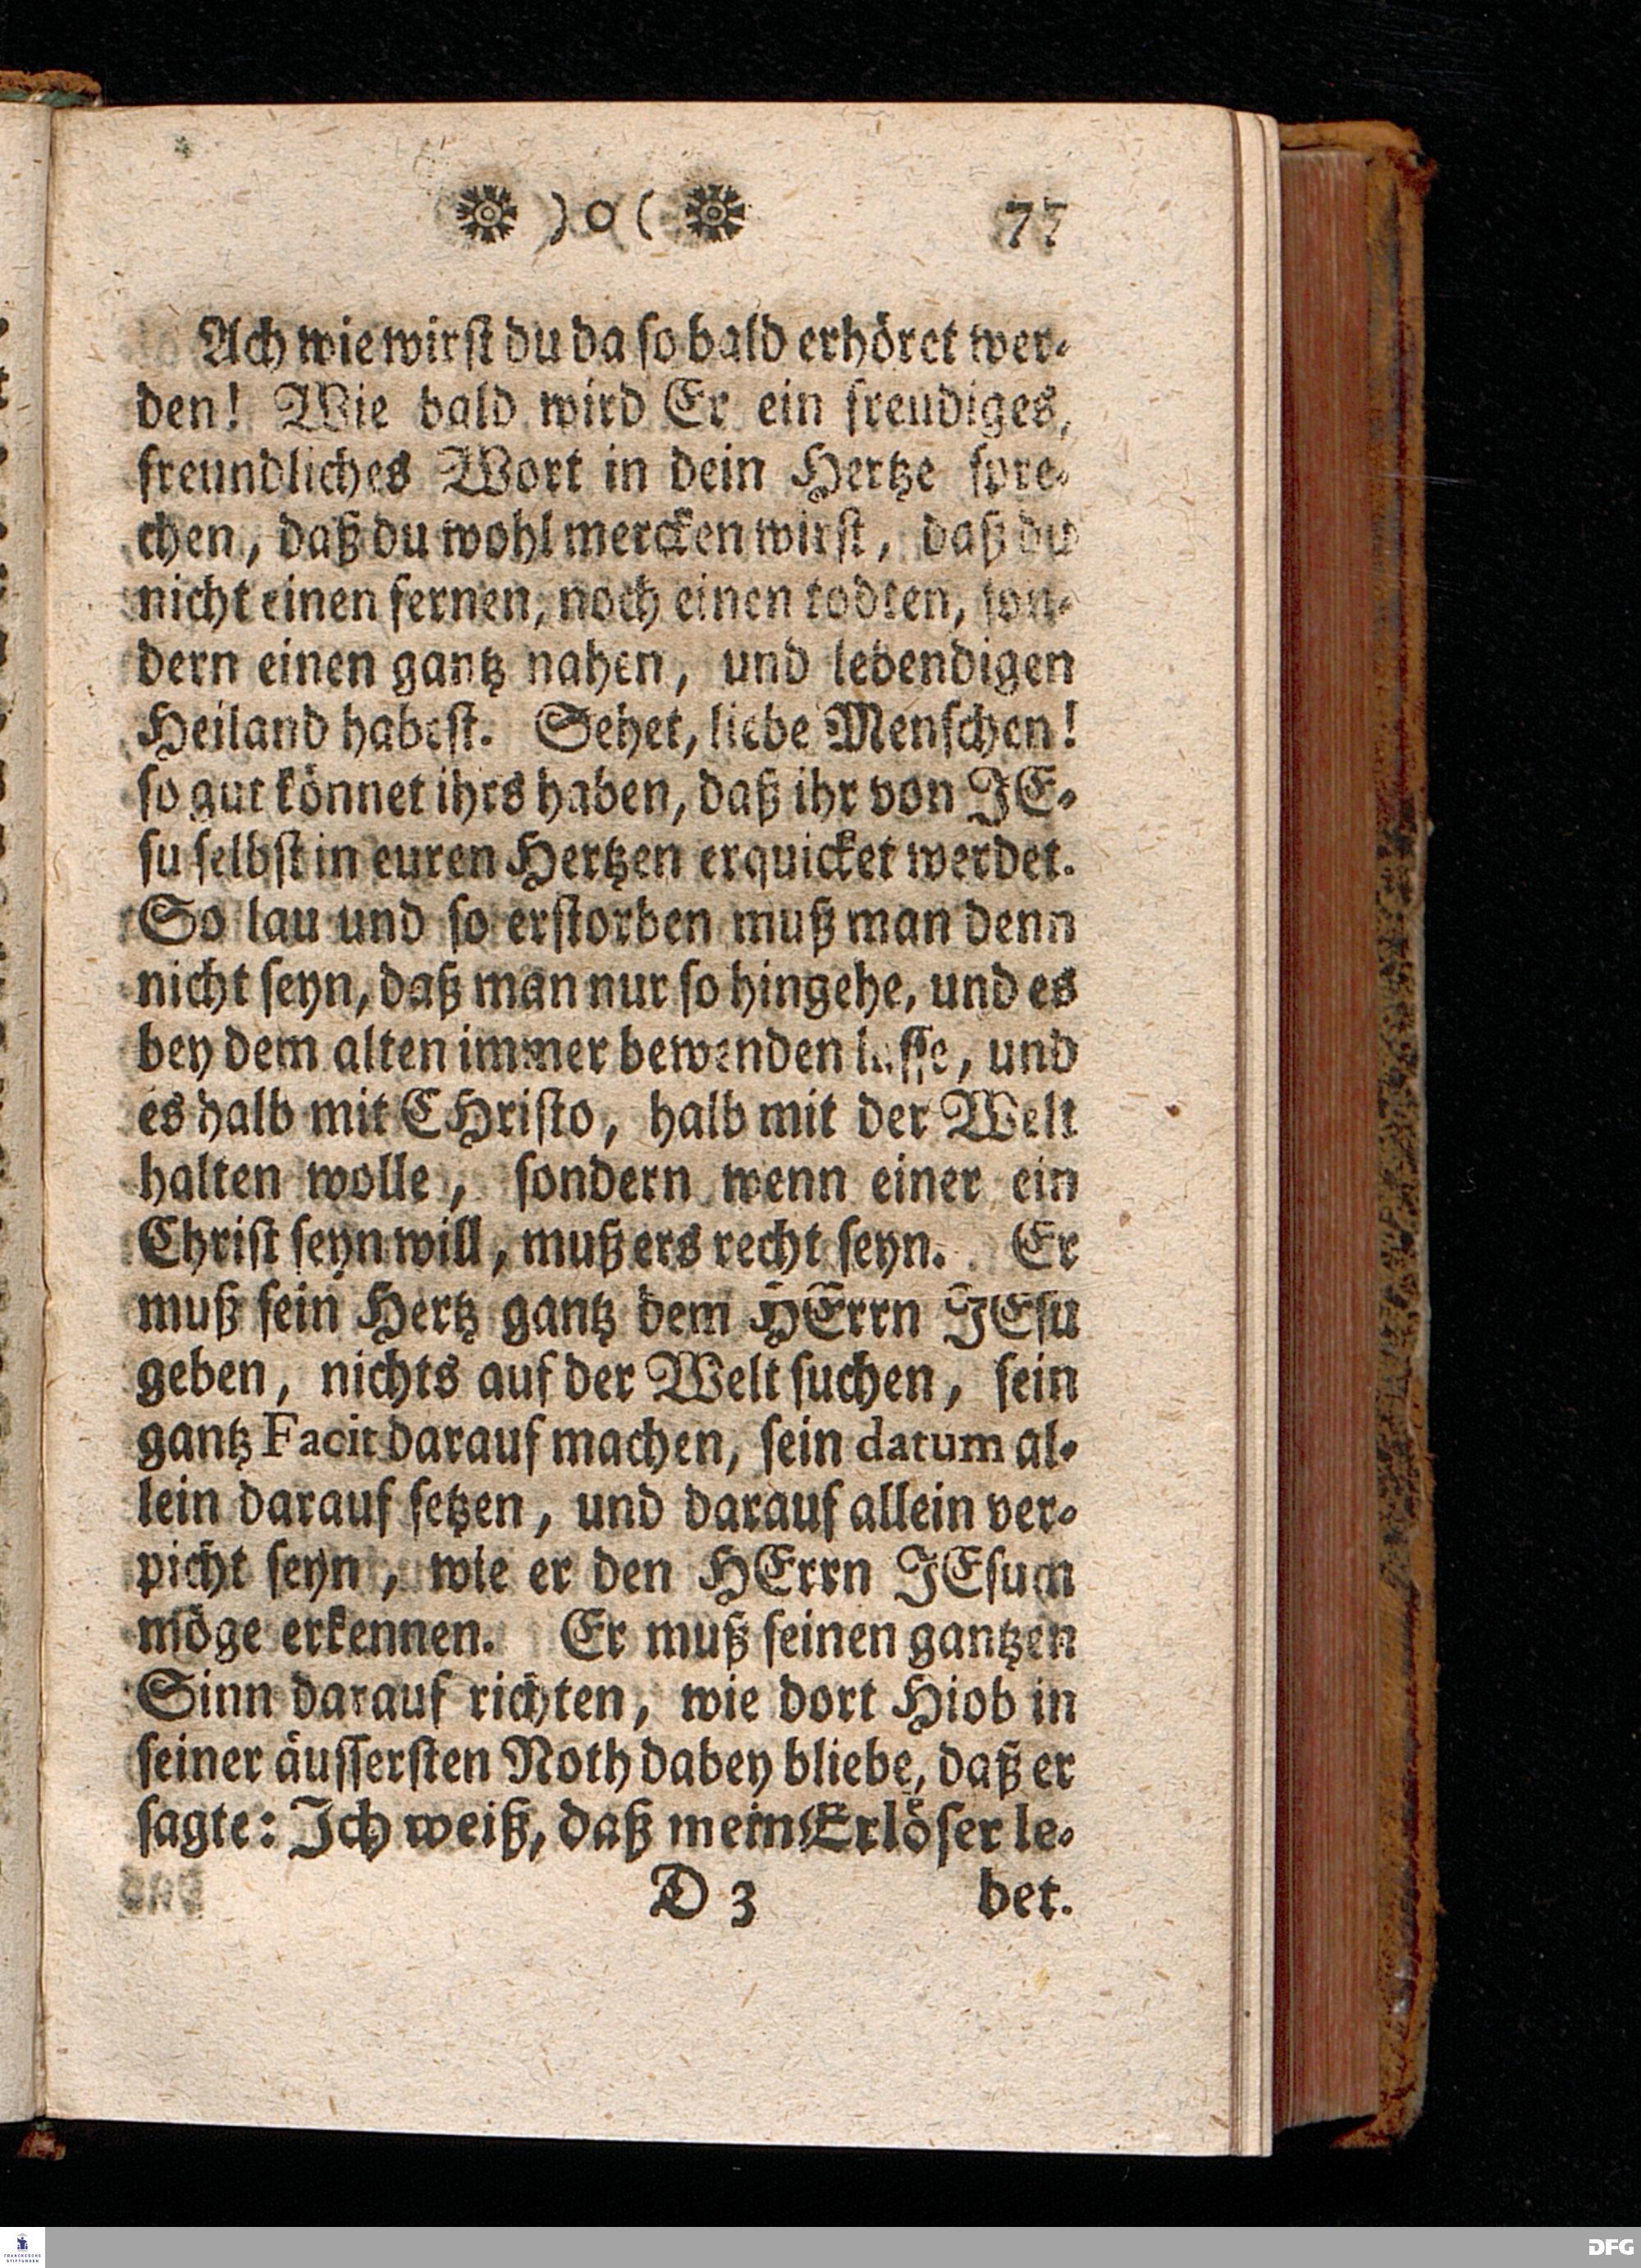 )o( 77
Ach wie wirst du da so bald erhöret wer-
den! Wie bald wird Er ein freudiges,
freundliches Wort in dein Hertze spre-
chen, daß du wohl mercken wirst, daß du
nicht einen fernen, noch einen todten, son-
dern einen gantz nahen, und lebendigen
Heiland habest. Sehet, liebe Menschen!
so gut könnet ihrs haben, daß ihr von JE-
su selbst in euren Hertzen erquicket werdet.
So lau und so erstorben muß man denn
nicht seyn, daß man nur so hingehe, und es
bey dem alten immer bewenden lasse, und
es halb mit CHristo, halb mit der Welt
halten wolle, sondern wenn einer ein
Christ seyn will, muß ers recht seyn. Er
muß sein Hertz gantz dem HErrn JEsu
geben, nichts auf der Welt suchen, sein
gantz Facit darauf machen, sein datum al-
lein darauf setzen, und darauf allein ver-
picht seyn, wie er den HErrn JEsum
möge erkennen. Er muß seinen gantzen
Sinn darauf richten, wie dort Hiob in
seiner äussersten Noth dabey bliebe, daß er
sagte: Ich weiß, daß mein Erlöser le-
D 3 bet.
FRANCKESCHE
STIFTUNGEN
DFG